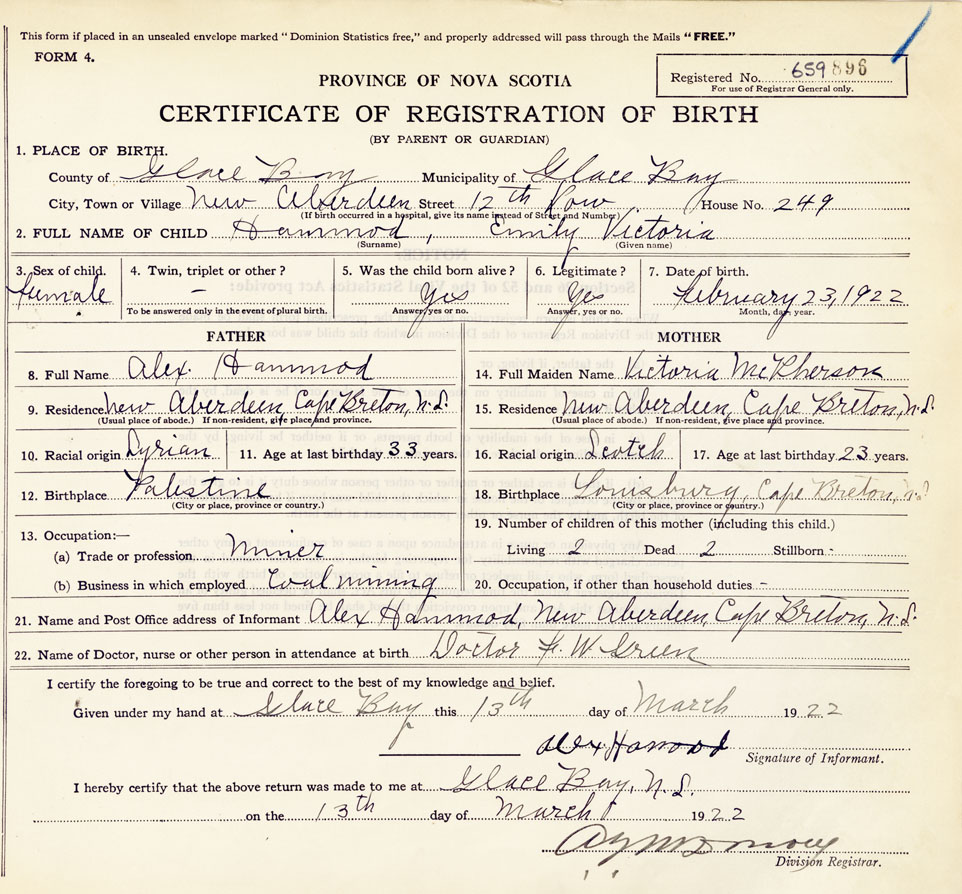 This form if placed in an unsealed envelope marked "Dominion Statistics free," and properly addressed will pass through the Mails "FREE."
FORM 4.
Registered No. 659896
For use of Registrar General only.
PROVINCE OF NOVA SCOTIA
CERTIFICATE OF REGISTRATION OF BIRTH
(BY PARENT OR GUARDIAN)
1. PLACE OF BIRTH.
County of Glace Bay Municipality of Glace Bay
City, Town or Village New Aberdeen Street 12th Row House No. 249
(If birth occurred in a hospital, give its name instead of Street and Number)
2. FULL NAME OF CHILD Hammod, Emily Victoria
(Surname) (Given name)
3. Sex of child. 4. Twin, triplet or other? 5. Was the child born alive? 6. Legitimate? 7. Date of birth.
female - Yes Yes February 23, 1922
To be answered only in the event of plural birth. Answer, yes or no. Answer, yes or no. Month, day, year.
FATHER MOTHER
8. Full Name Alex. Hammod 14. Full Maiden Name Victoria McPherson
9. Residence New Aberdeen, Cape Breton, N.S. 15. Residence New Aberdeen, Cape Breton, N.S.
(Usual place of abode.) If non-resident, give place and province. (Usual place of abode.) If non-resident, give place and province.
10. Racial origin Syrian 11. Age at last birthday 33 years. 16. Racial origin Scotch 17. Age at last birthday 23 years.
12. Birthplace Palestine 18. Birthplace Louisburg, Cape Breton, N.S.
(City or place, province or country.) (City or place, province or country.)
19. Number of children of this mother (including this child.)
13. Occupation:—
(a) Trade or profession Miner Living 2 Dead 2 Stillborn -
(b) Business in which employed Coal mining 20. Occupation, if other than household duties -
21. Name and Post Office address of Informant Alex Hammod, New Aberdeen, Cape Breton, N.S.
22. Name of Doctor, nurse or other person in attendance at birth Doctor F. W. Green
I certify the foregoing to be true and correct to the best of my knowledge and belief.
Given under my hand at Glace Bay this 13th day of March 1922
Alex Hamood
Signature of Informant.
I hereby certify that the above return was made to me at Glace Bay, N.S.
on the 13th day of March 1922
Division Registrar.